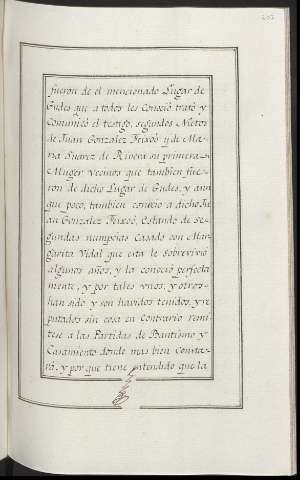 fueron de el mencionado Lugar de
Gudes que a todos les Conoció trató y
Comunicó el testigo, segundos Nietos
de Juan Gonzalez Feixoó y de Ma-
ria Suarez de Rivera su primera
Muger vecinos que tambien fue-
ron de dicho Lugar de Gudes, y aun
que poco, tambien conocio a dicho Ju
an Gonzalez Feixoó, Estando de se-
gundas numpcias Casado con Mar-
garita Vidal que esta le sobrevivió
algunos años, y la conoció perfecta
mente, y por tales unos, y otros
han sido y son havidos tenidos, y re
putados sin cosa en Contrario remi
tese a las Partidas de Bautismo y
Casamiento donde mas bien Consta-
rá, y por que tiene entendido que la